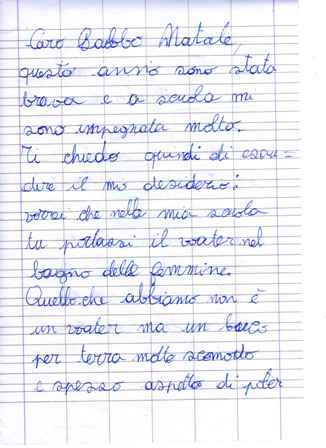 Caro Babbo Natale,
questo anno sono stata
brava e a scuola mi
sono impegnata molto.
Ti chiedo quindi di esau=
dire il mio desiderio:
vorrei che nella mia scuola
tu portassi il water nel
bagno delle femmine.
Quello che abbiamo non è
un water ma un buco
per terra molto scomodo
e spesso aspetto di poter